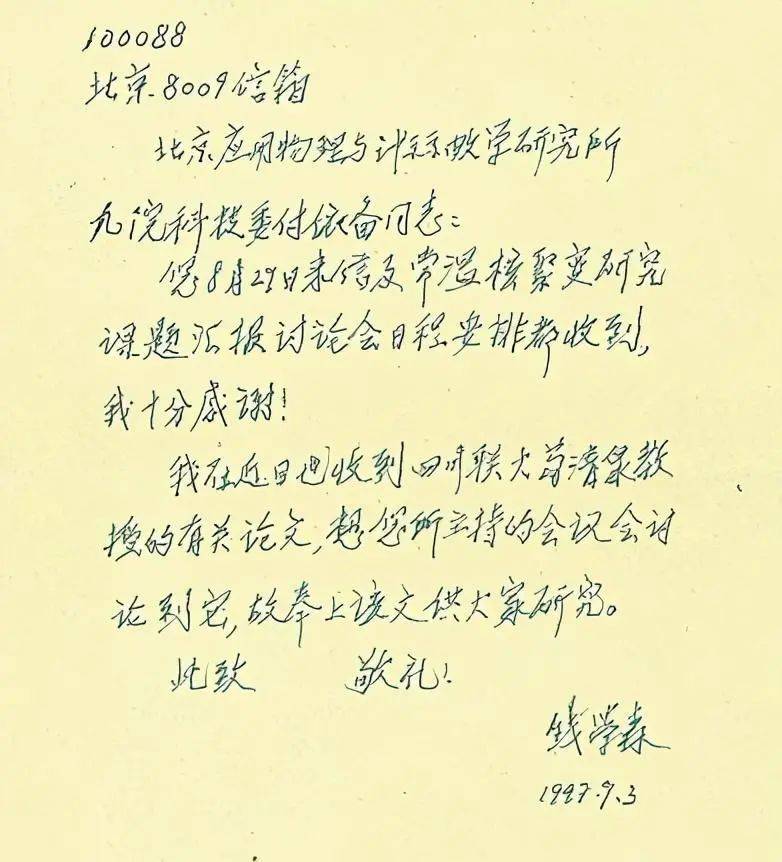 100088
北京8009信箱
北京应用物理与计算数学研究所
九院科技委付依备同志：
您8月29日来信及常温核聚变研究
课题汇报讨论会日程安排都收到，
我十分感谢！
我在近日也收到四川联大苟清泉教
授的有关论文，想您所主持的会议会讨
论到它，故奉上该文供大家研究。
此致 敬礼！
钱学森
1997.9.3